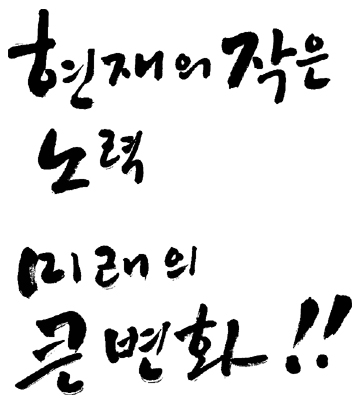 현재의 작은
노력
미래의
큰 변화!!